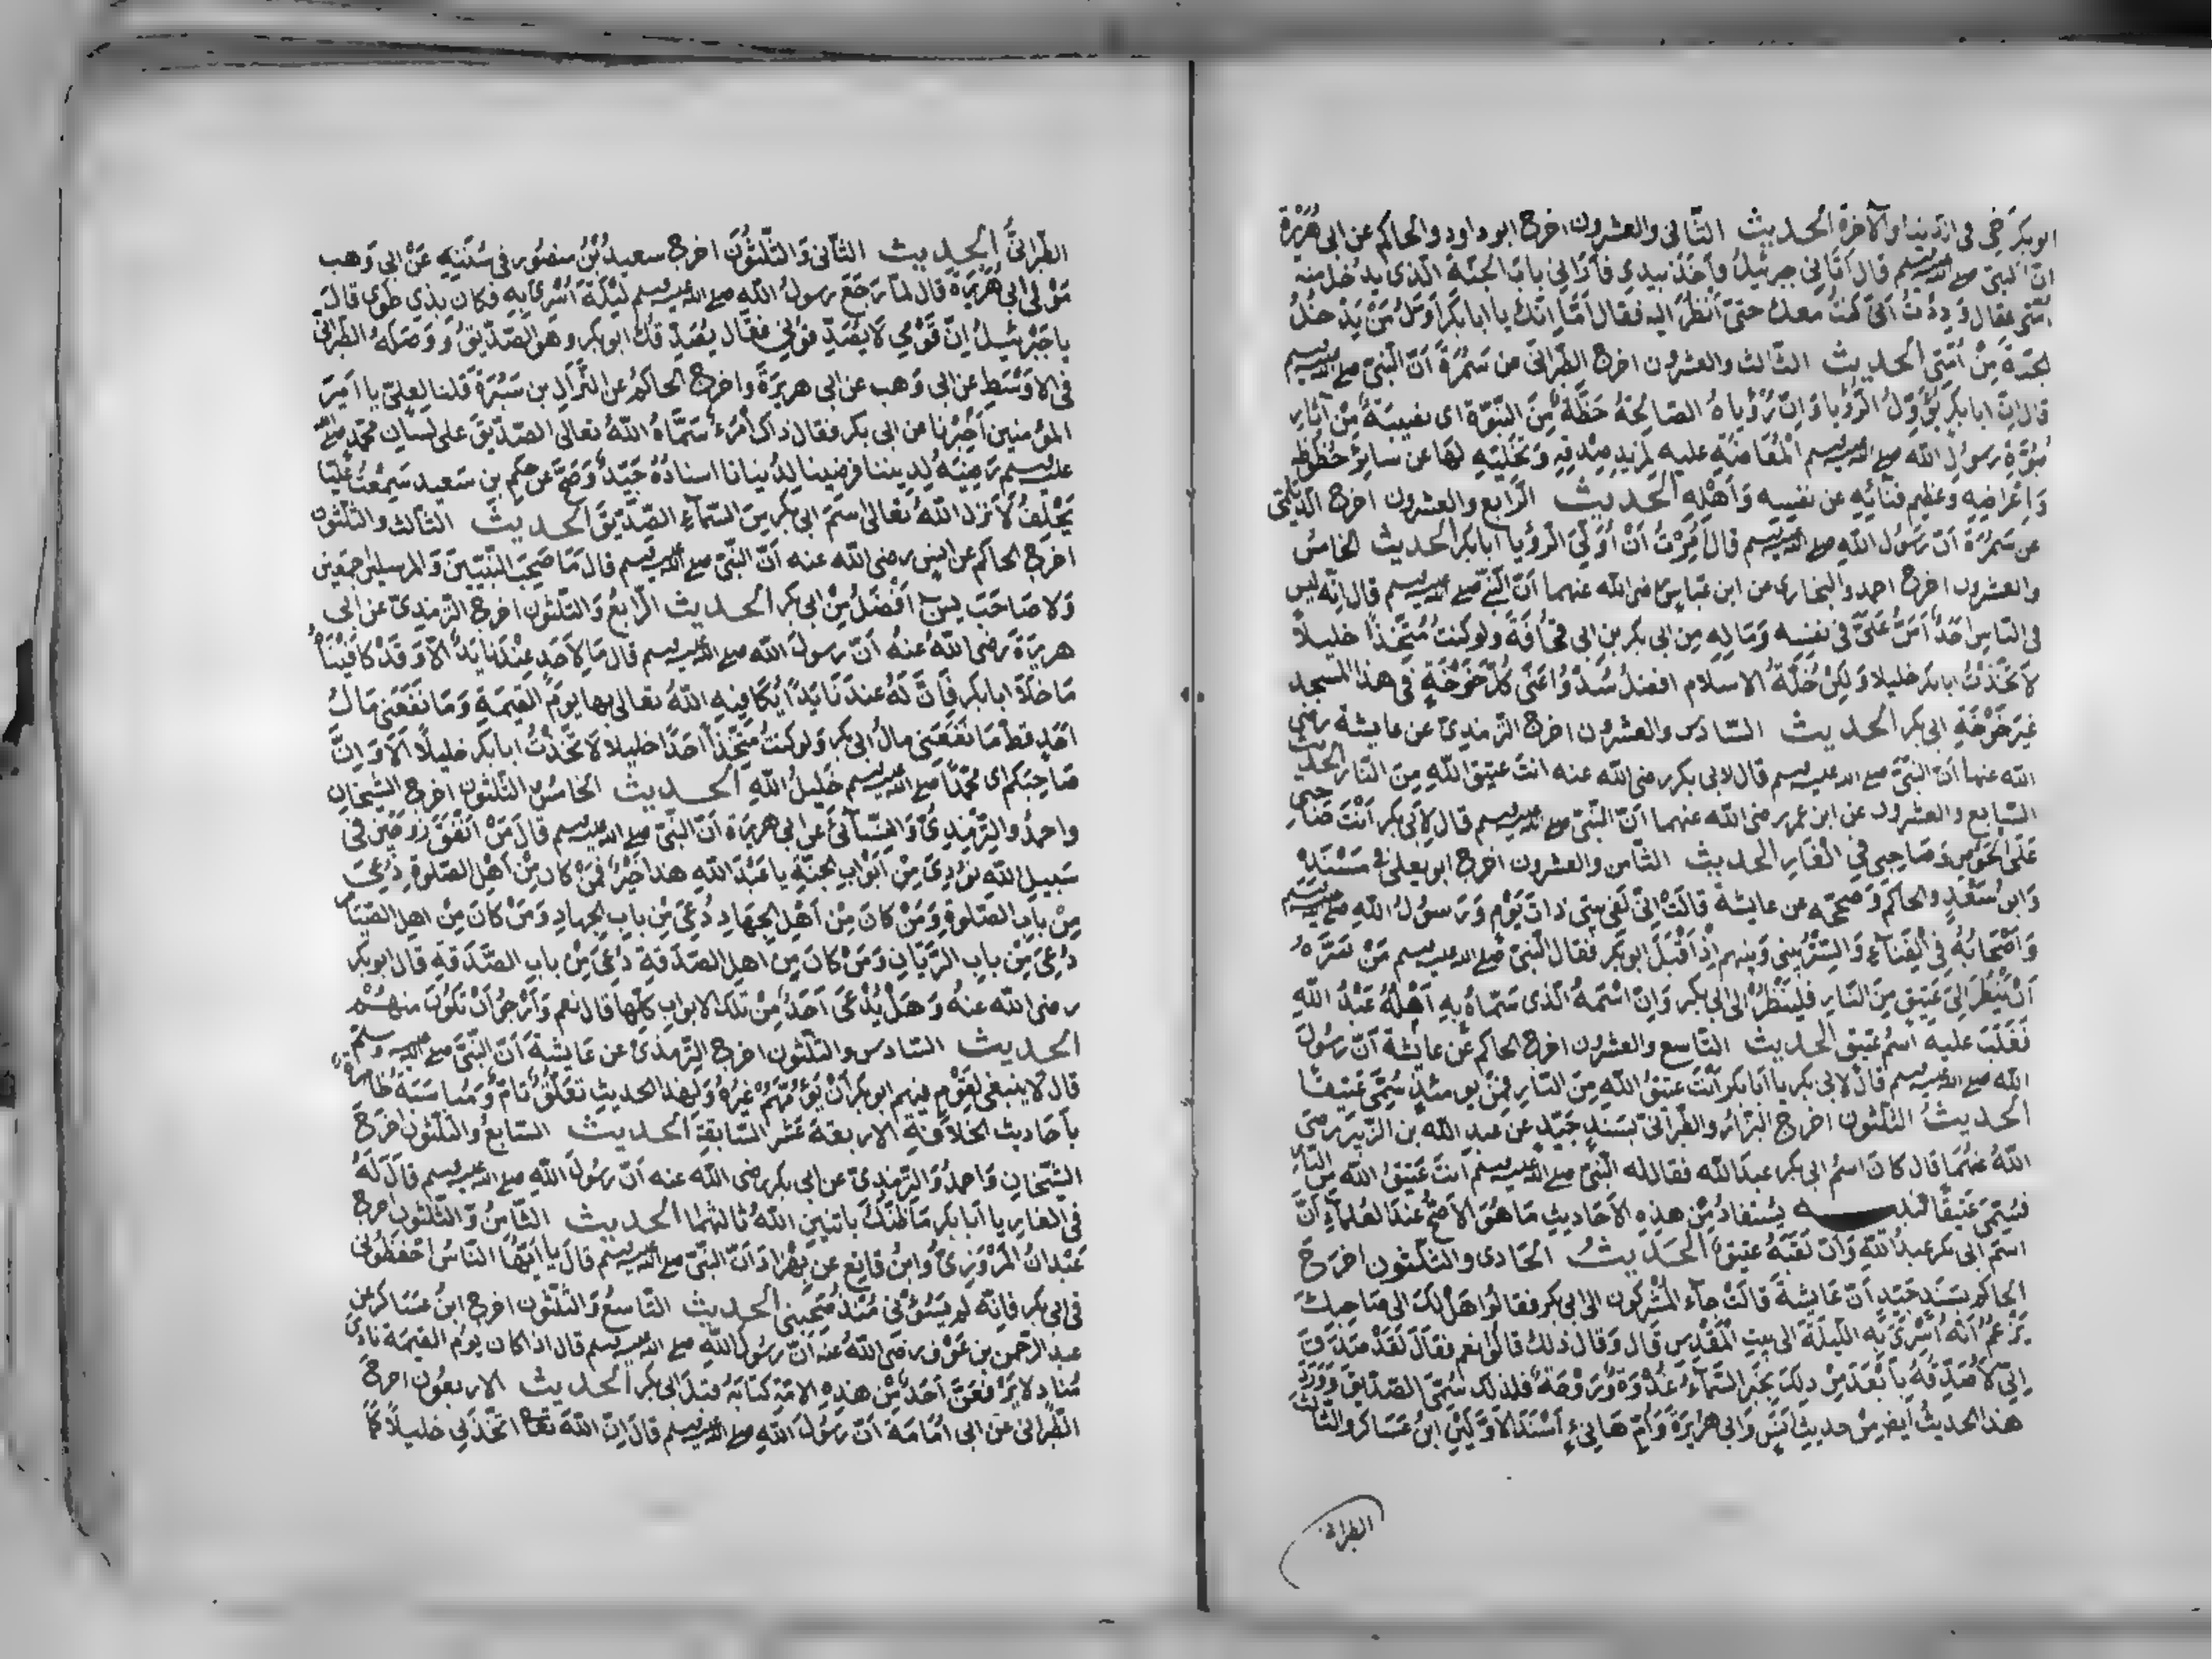 ابوبكر خي في الدنيا والآخرة الحديث الثاني والعشرون اخرج ابو داود والحاكم عن ابي هريرة
ان النبي صلى الله عليه وسلم قال أتاني جبرئيل وأخذ بيدي فأراني باب الجنة الذي يدخل منه
امتي فقال وددت اني كنت معك حتى أنظر اليه فقال أما إنك يا ابا بكر اول من يدخل
الجنة من أمتي الحديث الثالث والعشرون اخرج الطبراني عن سمرة أن النبي صلى الله عليه وسلم
قال ان ابا بكر يؤول الرؤيا وان رؤياه الصالحة حظه من النبوة اي نصيبه من آثار
نبوة رسول الله صلى الله عليه وسلم المفاضة عليه لمزيد صدقه وتخليه لها عن سائر حظوظ
واغراضه وعظيم فنائه عن نفسه وأهله الحديث الرابع والعشرون اخرج الديلمي
عن سمرة ان رسول الله صلى الله عليه وسلم قال أمرت أن أولي الرؤيا ابا بكر الحديث الخامس
والعشرون اخرج احمد والبخاري عن ابن عباس رضي الله عنهما أن النبي صلى الله عليه وسلم قال انه ليس
في الناس احد أمن علي في نفسه وماله من ابي بكر بن ابي قحافة ولو كنت متخذا خليلا
لاتخذت ابا بكر خليلا ولكن خلة الاسلام افضل سدوا عني كل خوخة في هذا المسجد
غير خوخة ابي بكر الحديث السادس والعشرون اخرج الترمذي عن عايشة رضي
الله عنها أن النبي صلى الله عليه وسلم قال لابي بكر رضي الله عنه انت عتيق الله من النار الحديث
السابع والعشرون عن ابن عمر رضي الله عنهما ان النبي صلى الله عليه وسلم قال لأبي بكر أنت صاحبي
على الحوض وصاحبي في الغار الحديث الثامن والعشرون اخرج ابو يعلى في مسنده
وابن سعد والحاكم وصححه عن عايشة قالت اني لفي بيتي ذات يوم ورسول الله صلى الله عليه وسلم
وأصحابه في الفناء والستر بيني وبينهم إذ أقبل ابو بكر فقال النبي صلى الله عليه وسلم من سره
أن ينظر الى عتيق من النار فلينظر الى ابي بكر وان اسمه الذي سماه به أهله عبد الله
فغلب عليه اسم عتيق الحديث التاسع والعشرون اخرج الحاكم عن عايشة أن رسول
الله صلى الله عليه وسلم قال لابي بكر يا أبا بكر أنت عتيق الله من النار فمن يومئذ سمي عتيقا
الحديث الثلثون اخرج البزار والطبراني بسند جيد عن عبد الله بن الزبير رضي
الله عنهما قال كان اسم ابي بكر عبد الله فقال له النبي صلى الله عليه وسلم انت عتيق الله من النار
فسمي عتيقا تنبيه يستفاد من هذه الاحاديث ما هو الاصح عند العلماء أن
اسم ابي بكر عبد الله وان لقبه عتيق الحديث الحادي والثلثون اخرج
الحاكم بسند جيد أن عايشة قالت جاء المشركون الى ابي بكر فقالوا هل لك الى صاحبك
يزعم أنه أسري به الليلة الى بيت المقدس قال وقال ذلك قالوا نعم فقال لقد صدق
إني لأصدقه بابعد من ذلك بخبر السماء غدوة وروحة فلذلك سمي الصديق وورد
هذا الحديث ايضا من حديث أنس وابي هريرة وأم هانئ أسند الاولين ابن عساكر والثالث
الطبراني
الطبراني الحديث الثاني والثلثون اخرج سعيد بن منصور في سننه عن ابي وهب
مولى ابي هريرة قال لما رجع رسول الله صلى الله عليه وسلم ليلة أسري به فكان بذي طوى قال
يا جبرئيل إن قومي لا يصدقوني فقال يصدقك ابو بكر وهو الصديق ووصله الطبراني
في الاوسط عن ابي وهب عن ابي هريرة واخرج الحاكم عن النزال بن سبرة قلنا لعلي يا امير
المؤمنين أخبرنا عن ابي بكر فقال ذاك امرء سماه الله تعالى الصديق على لسان محمد صلى الله
عليه وسلم رضيه لديننا فرضيناه لدنيانا اسناده جيد وصح عن حكيم بن سعيد سمعت عليا
يحلف لأنزل الله تعالى اسم ابي بكر من السماء الصديق الحديث الثالث والثلثون
اخرج الحاكم عن انس رضي الله عنه أن النبي صلى الله عليه وسلم قال ما صحب النبيين والمرسلين اجمعين
ولا صاحب يس أفضل من ابي بكر الحديث الرابع والثلثون اخرج الترمذي عن ابي
هريرة رضي الله عنه أن رسول الله صلى الله عليه وسلم قال ما لاحد عندنا يد الا وقد كافيناه
ما خلا ابا بكر فان له عندنا يدا يكافيه الله تعالى بها يوم القيمة وما نفعني مال
احد قط ما نفعني مال ابي بكر ولو كنت متخذا أحدا خليلا لاتخذت ابا بكر خليلا ألا وان
صاحبكم اي محمدا صلى الله عليه وسلم خليل الله الحديث الخامس والثلثون اخرج الشيخان
واحمد والترمذي والنسائي عن ابي هريرة أن النبي صلى الله عليه وسلم قال من أنفق زوجين في
سبيل الله نودي من أبواب الجنة يا عبد الله هذا خير فمن كان من أهل الصلوة دعي
من باب الصلوة ومن كان من أهل الجهاد دعي من باب الجهاد ومن كان من اهل الصيام
دعي من باب الريان ومن كان من اهل الصدقة دعي من باب الصدقة قال ابو بكر
رضي الله عنه وهل يدعى أحد من تلك الابواب كلها قال نعم وأرجو أن تكون منهم
الحديث السادس والثلثون اخرج الترمذي عن عايشة أن النبي صلى الله عليه وسلم
قال لا ينبغي لقوم فيهم ابو بكر أن يؤمهم غيره ولهذا الحديث تعلق تام ومناسبة ظاهرة
بأحاديث الخلافة الاربعة عشر السابقة الحديث السابع والثلثون اخرج
الشيخان واحمد والترمذي عن ابي بكر رضي الله عنه أن رسول الله صلى الله عليه وسلم قال له
في الغار يا أبا بكر ما ظنك باثنين الله ثالثهما الحديث الثامن والثلثون اخرج
عبدان المروزي وابن قانع عن بهزاد أن النبي صلى الله عليه وسلم قال يا ايها الناس احفظوني
في ابي بكر فانه لم يسؤني منذ صحبني الحديث التاسع والثلثون اخرج ابن عساكر عن
عبد الرحمن بن عوف رضي الله عنه أن رسول الله صلى الله عليه وسلم قال اذا كان يوم القيمة نادى
مناد لا يرفعن أحد من هذه الامة كتابه قبل ابي بكر الحديث الاربعون اخرج
الطبراني عن ابي أمامة أن رسول الله صلى الله عليه وسلم قال ان الله تعالى اتخذني خليلا كما